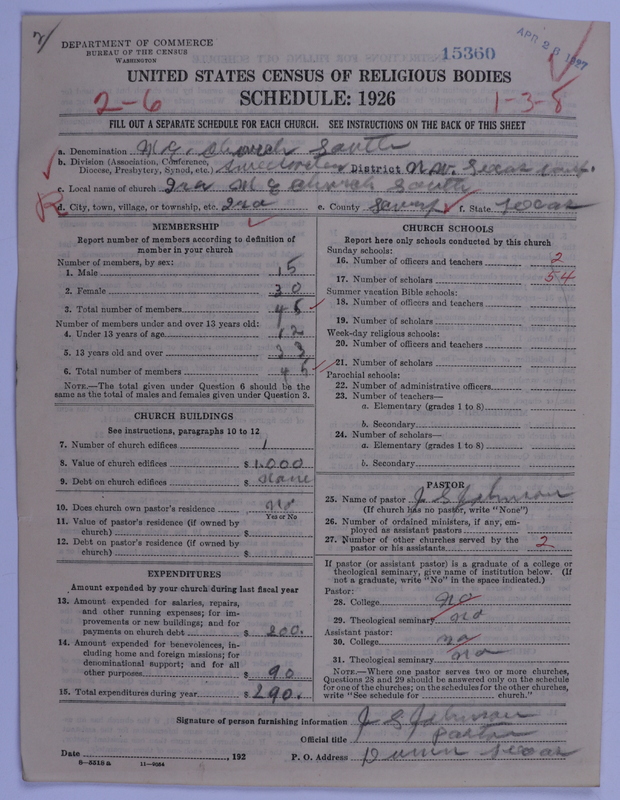 DEPARTMENT OF COMMERCE
BUREAU OF THE CENSUS
WASHINGTON
15360
APR 28 1927
UNITED STATES CENSUS OF RELIGIOUS BODIES
SCHEDULE: 1926
2-6
1-3-8
FILL OUT A SEPARATE SCHEDULE FOR EACH CHURCH. SEE INSTRUCTIONS ON THE BACK OF THIS SHEET
a. Denomination M E Church South
b. Division (Association, Conference, Diocese, Presbytery, Synod, etc.) Sweetwater District N.W. Texas Conf.
c. Local name of church Ira M E Church South
d. City, town, village, or township, etc. Ira e. County Scurry f. State Texas
MEMBERSHIP
Report number of members according to definition of
member in your church
Number of members, by sex:
1. Male 15
2. Female 30
3. Total number of members 45
Number of members under and over 13 years old:
4. Under 13 years of age 12
5. 13 years old and over 33
6. Total number of members 45
NOTE.—The total given under Question 6 should be the
same as the total of males and females given under Question 3.
CHURCH BUILDINGS
See instructions, paragraphs 10 to 12
7. Number of church edifices 1
8. Value of church edifices $ 1.000
9. Debt on church edifices $ None
10. Does church own pastor's residence No
Yes or No
11. Value of pastor's residence (if owned by
church) $
12. Debt on pastor's residence (if owned by
church) $
EXPENDITURES
Amount expended by your church during last fiscal year
13. Amount expended for salaries, repairs,
and other running expenses; for im-
provements or new buildings; and for
payments on church debt $ 200.
14. Amount expended for benevolences, in-
cluding home and foreign missions; for
denominational support; and for all
other purposes $ 90
15. Total expenditures during year $ 290.
CHURCH SCHOOLS
Report here only schools conducted by this church
Sunday schools:
16. Number of officers and teachers 2
17. Number of scholars 54
Summer vacation Bible schools:
18. Number of officers and teachers
19. Number of scholars
Week-day religious schools:
20. Number of officers and teachers
21. Number of scholars
Parochial schools:
22. Number of administrative officers
23. Number of teachers—
a. Elementary (grades 1 to 8)
b. Secondary
24. Number of scholars—
a. Elementary (grades 1 to 8)
b. Secondary
PASTOR
25. Name of pastor J S Johnson
(If church has no pastor, write "None")
26. Number of ordained ministers, if any, em-
ployed as assistant pastors
27. Number of other churches served by the
pastor or his assistants 2
If pastor (or assistant pastor) is a graduate of a college or
theological seminary, give name of institution below. (If
not a graduate, write "No" in the space indicated.)
Pastor:
28. College No
29. Theological seminary no
Assistant pastor:
30. College no
31. Theological seminary no
NOTE.—Where one pastor serves two or more churches,
Questions 28 and 29 should be answered only on the schedule
for one of the churches; on the schedules for the other churches,
write "See schedule for church."
Signature of person furnishing information J S Johnson
Official title Pastor
Date , 192 P. O. Address Dunn Texas
8-5518a 11-9054